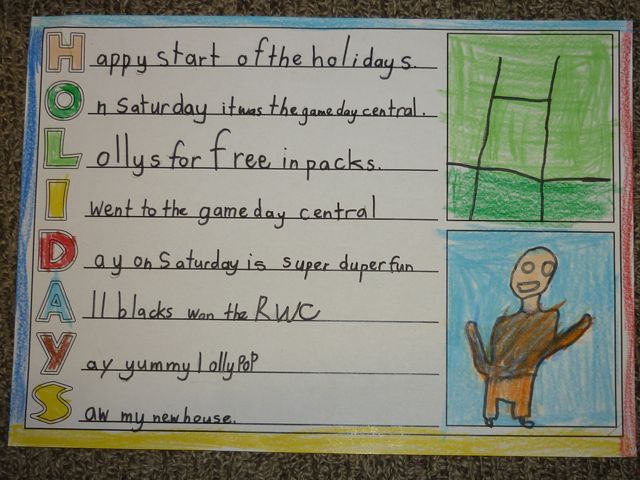 Happy start of the holidays.
On Saturday it was the game day central.
Lollys for free in packs.
I went to the game day central
Day on Saturday is super duper fun
All blacks won the RWC
Yay yummy lollyPoP
Saw my new house.